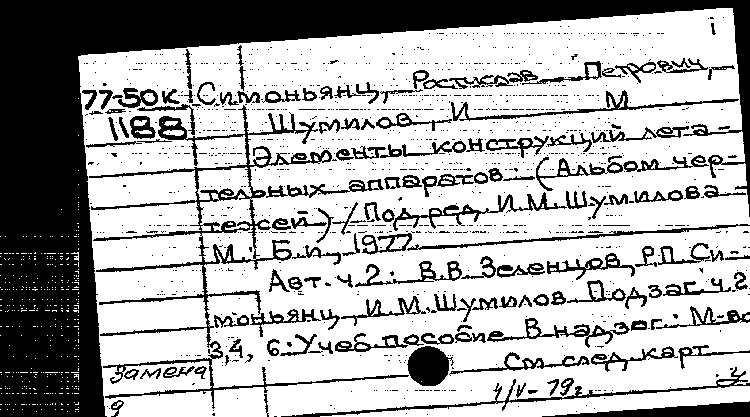 1
77-50К Симоньянц, Ростислав Петрович,
1188 Шумилов, И М
Элементы конструкций лета-
тельных аппаратов: (Альбом чер-
тежей) / Под ред. И.М. Шумилова -
М.: Б.и., 1977.
Авт. ч.2: В.В. Зеленцов, Р.П. Си-
моньянц, И.М. Шумилов. Подзаг. ч.2,
3,4, 6: Учеб. пособие. В надзаг.: М-во
замена См след. карт
9 4/V-79г. ч